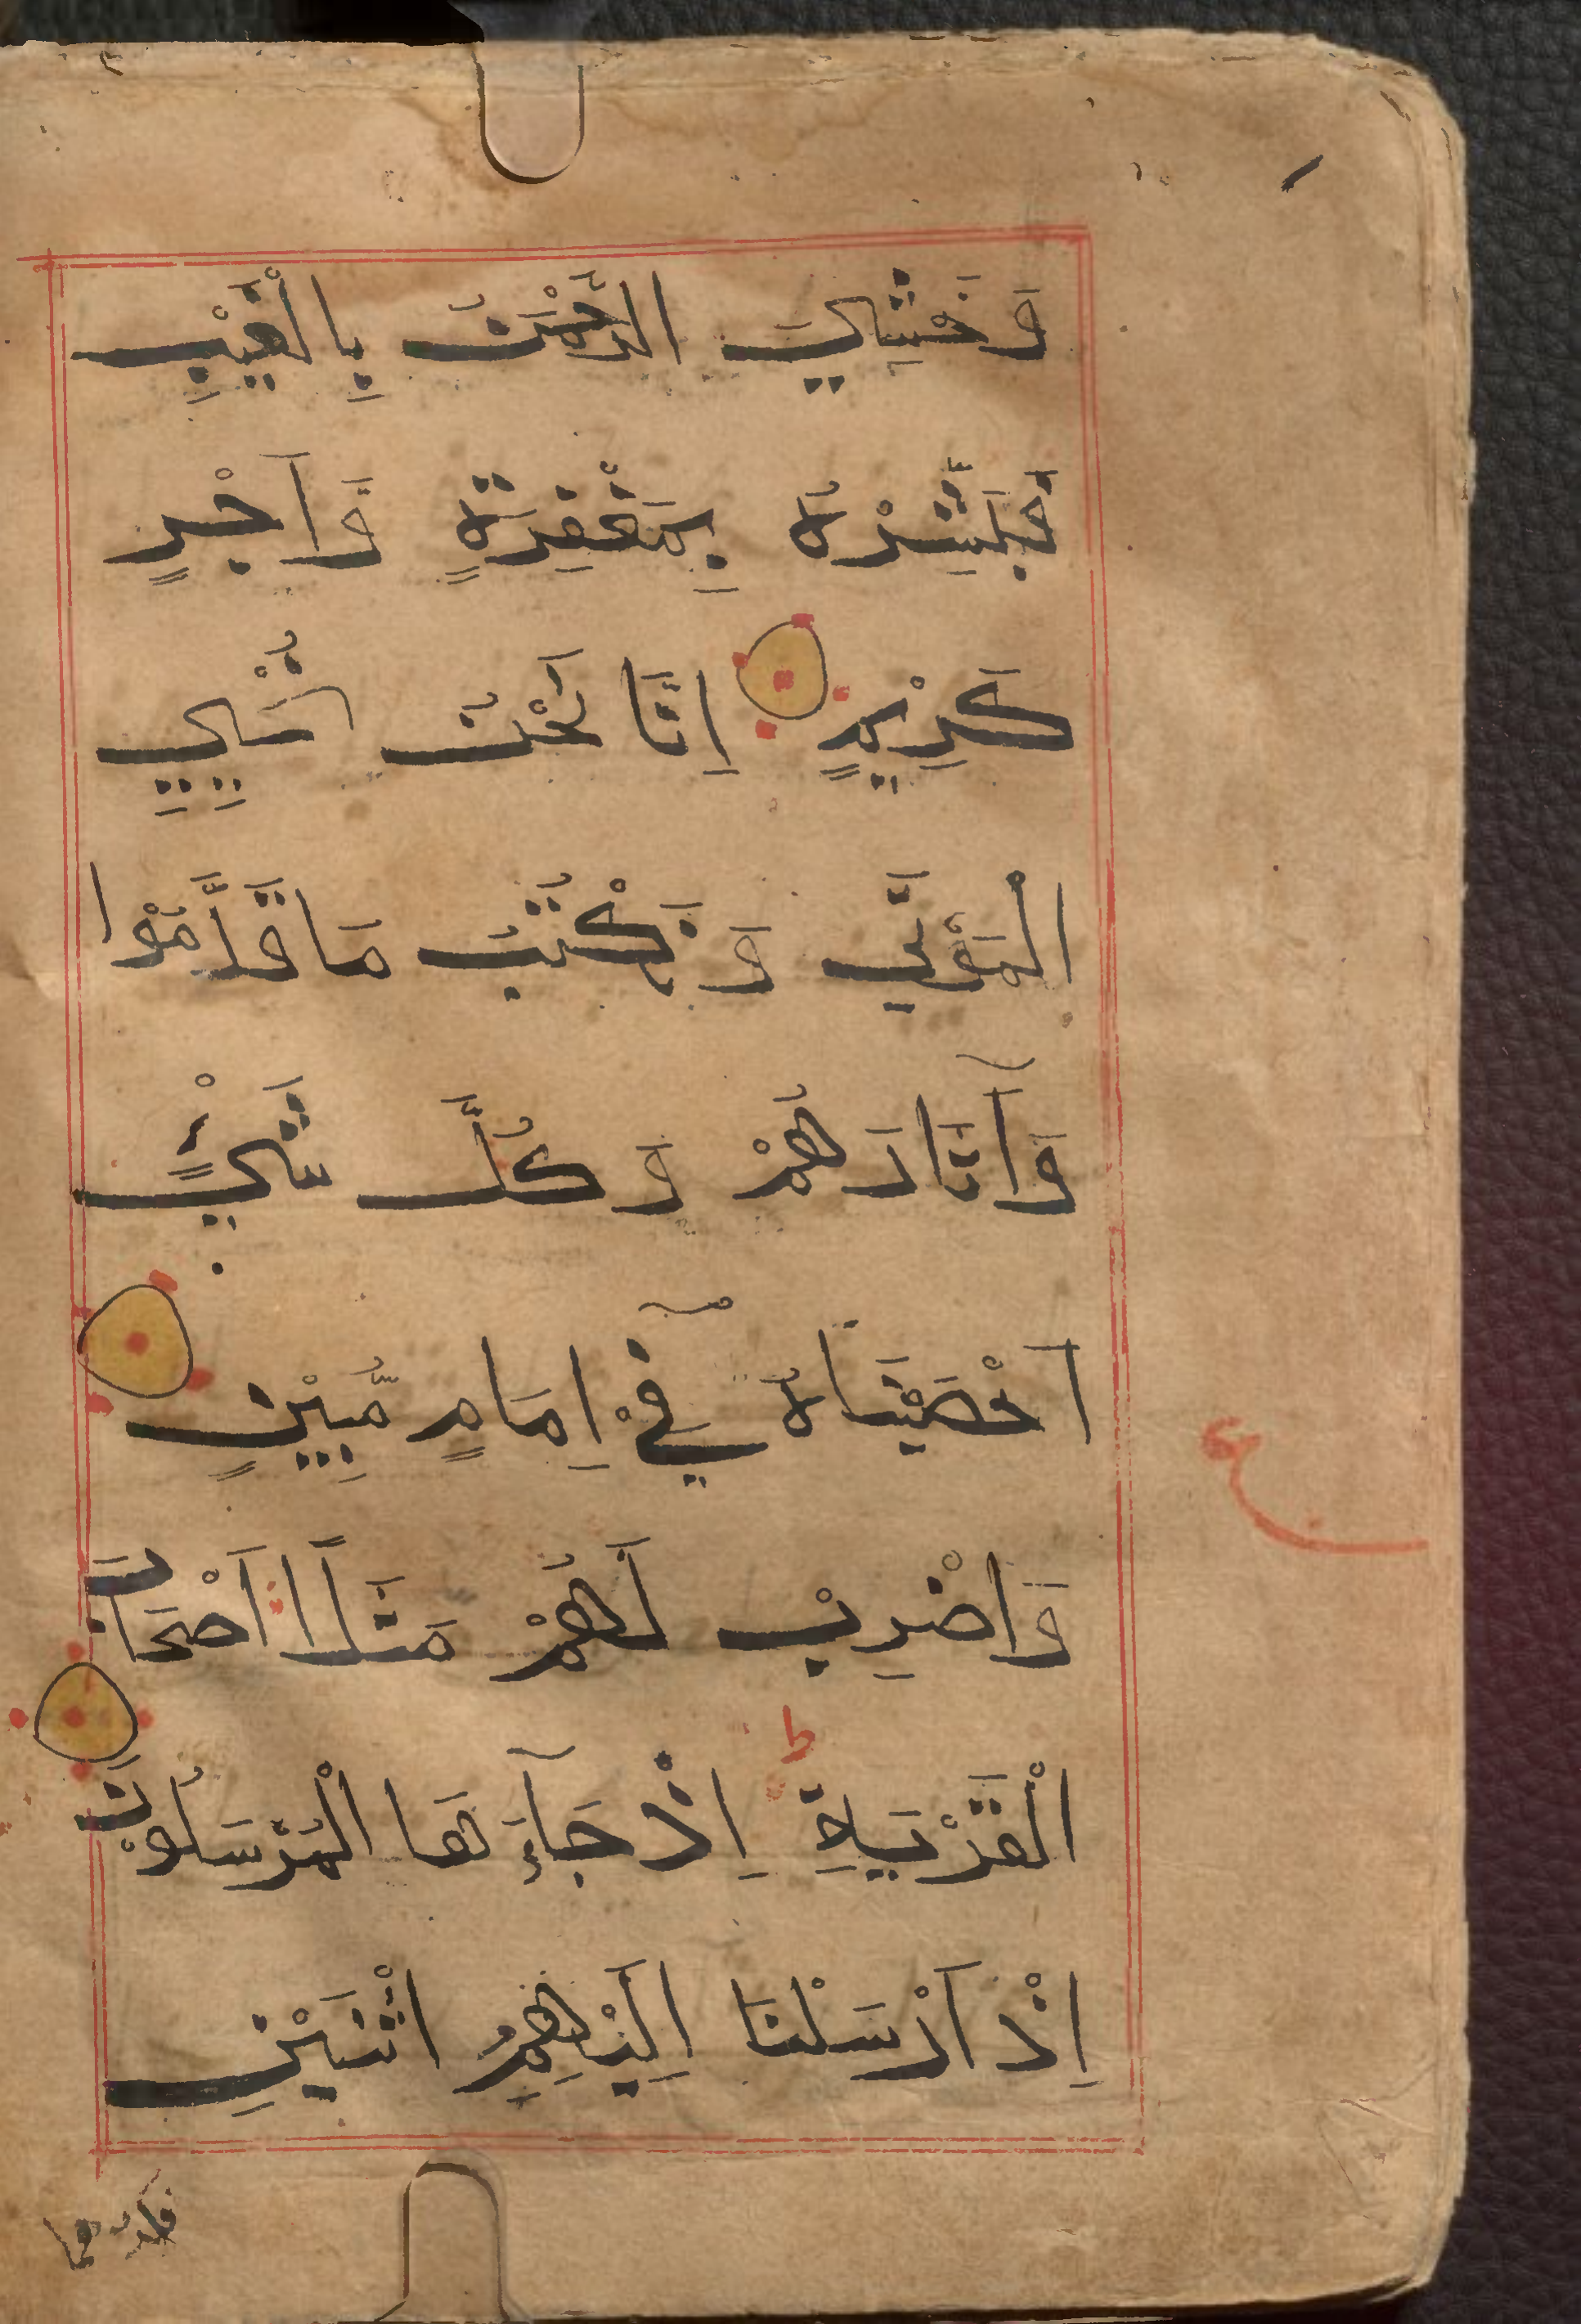 وَخَشِيَ الرَّحْمٰنَ بِالْغَيْبِ
فَبَشِّرْهُ بِمَغْفِرَةٍ وَّاَجْرٍ
كَرِيْمٍ اِنَّا نَحْنُ نُحْيِي
الْمَوْتٰى وَنَكْتُبُ مَا قَدَّمُوْا
وَاٰثَارَهُمْ وَكُلَّ شَيْءٍ
اَحْصَيْنَاهُ فِيْٓ اِمَامٍ مُّبِيْنٍ
ع
وَاضْرِبْ لَهُمْ مَثَلًا اَصْحَابَ
ط
الْقَرْيَةِ اِذْ جَآءَهَا الْمُرْسَلُوْنَ
اِذْ اَرْسَلْنَا اِلَيْهِمُ اثْنَيْنِ
فكذبوهما